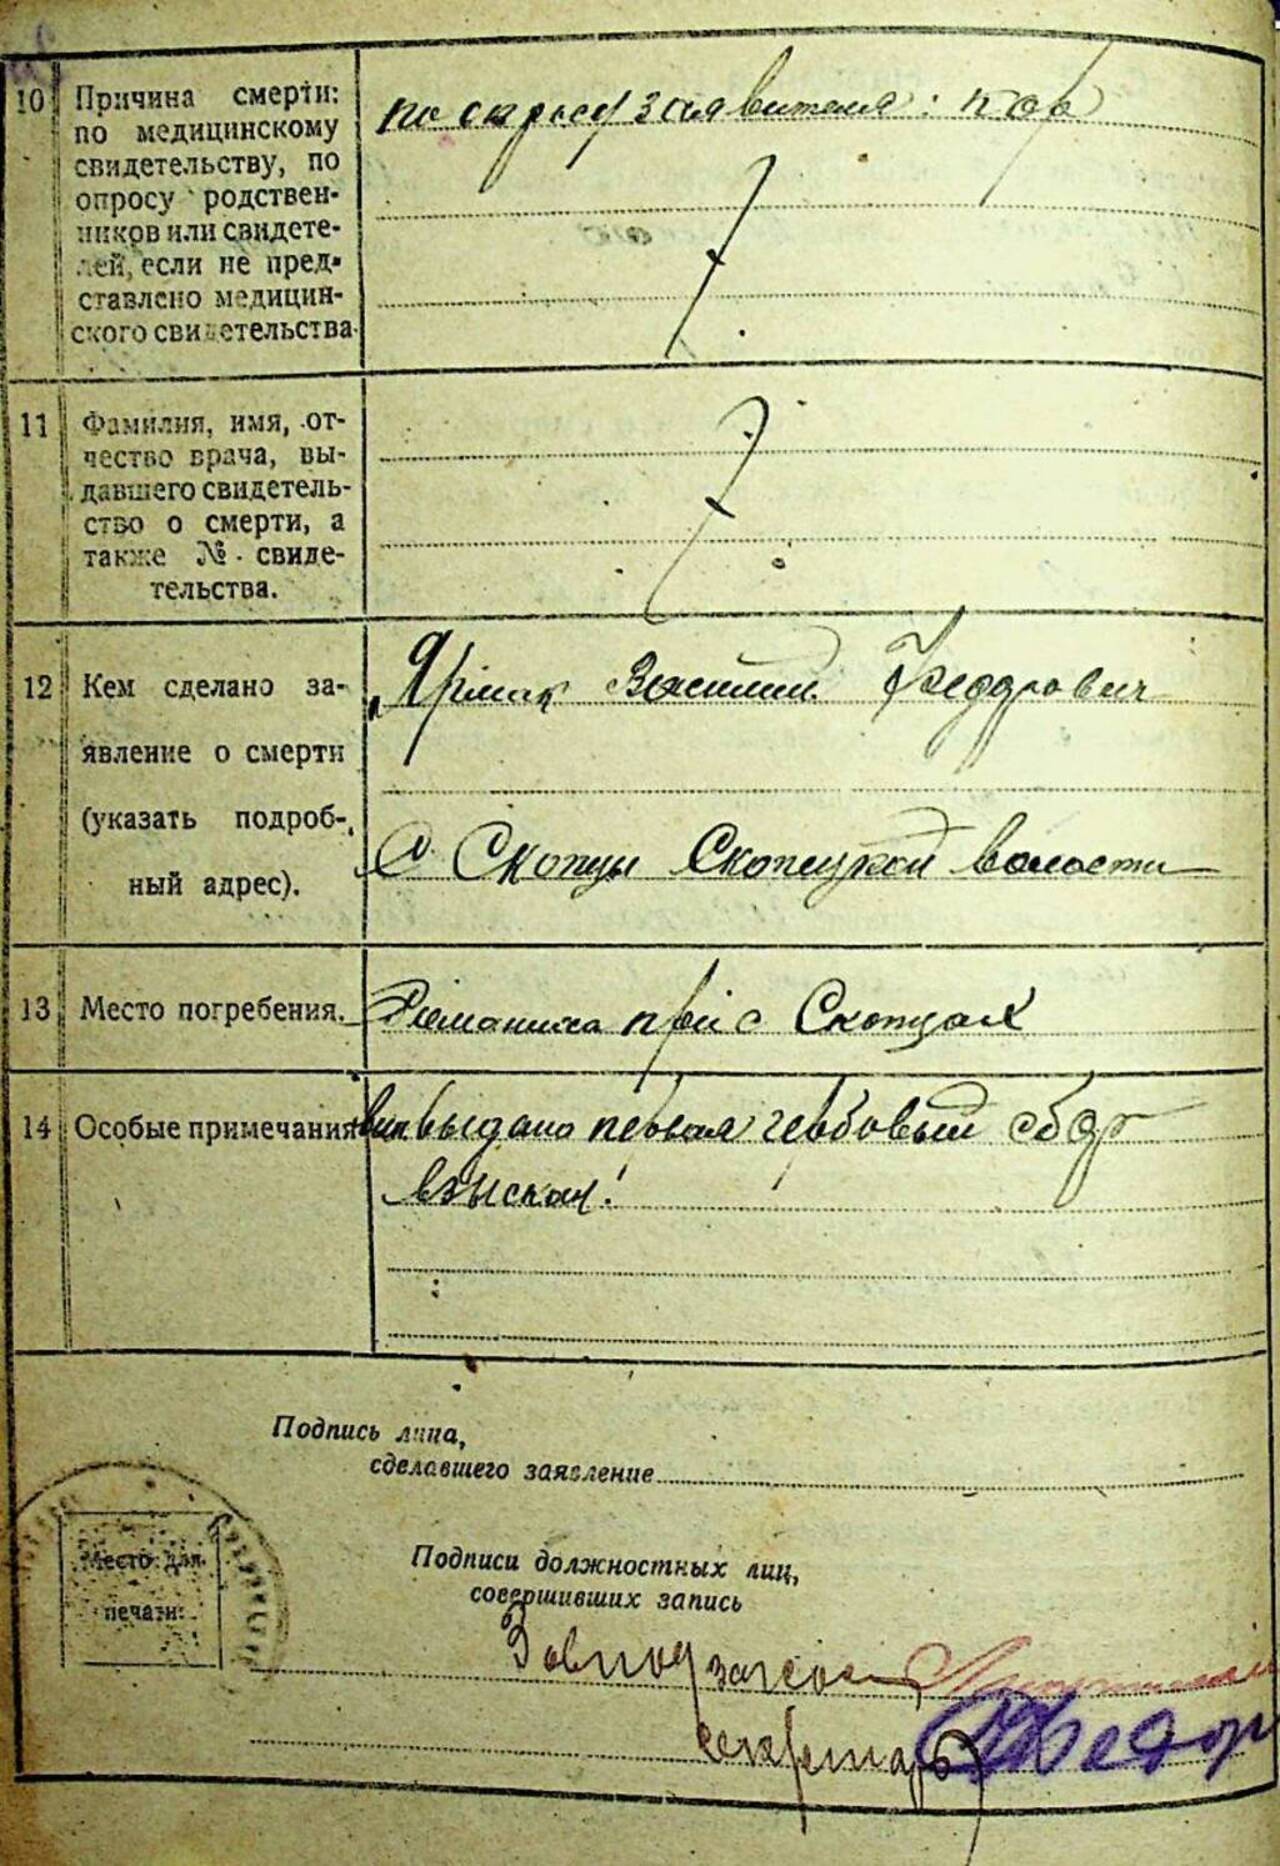 10 Причина смерти: по опросу заявителя: кор
по медицинскому
свидетельству, по
опросу родствен-
ников или свидете-
лей, если не пред-
ставлено медицин-
ского свидетельства
11 Фамилия, имя, от-
чество врача, вы-
давшего свидетель-
ство о смерти, а
также № свиде-
тельства.
12 Кем сделано за- Ярмак Василий Феддрович
явление о смерти
(указать подроб-
ный адрес).
С Скопцы Скопецкой волости
13 Место погребения. при с Скопцах
14 Особые примечания Вып выдана первая гербовый сбор
взыскан.
Подпись лица,
сделавшего заявление
Место для
печати:
Подписи должностных лиц,
совершивших запись
Завподзагсом
секретарь Федор